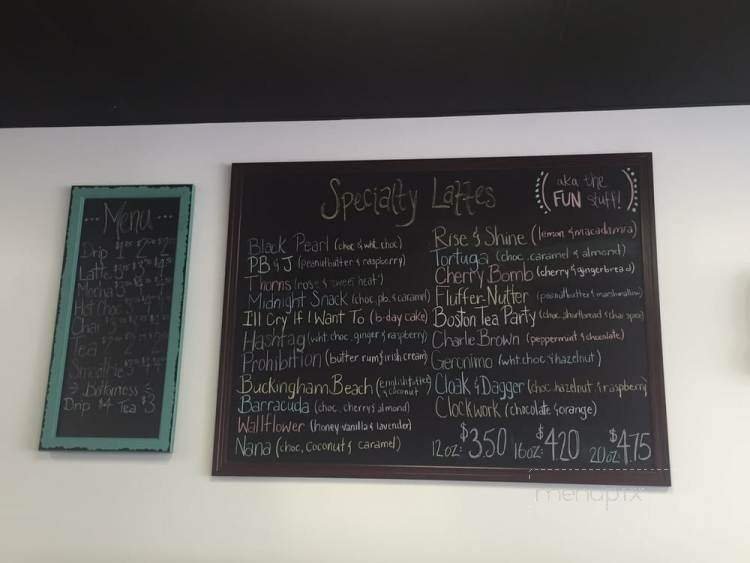 Menu
Drip
Latte
Mocha
Hot Choc
Chai
Tea
Smoothie
Bottomless
Drip $4 Tea $3
Specialty Lattes
aka the
FUN stuff!
Black Pearl (choc & wht. choc)
PB & J (peanutbutter & raspberry)
Thorns (rose & sweet heat)
Midnight Snack (choc, pb, & caramel)
I'll Cry If I Want To (b-day cake)
Hashtag (wht choc, ginger & raspberry)
Prohibition (butter rum & irish cream)
Buckingham Beach (english toffee
& coconut)
Barracuda (choc, cherry & almond)
Wallflower (honey vanilla & lavender)
Nana (choc, coconut & caramel)
Rise & Shine (lemon & macadamia)
Tortuga (choc, caramel & almond)
Cherry Bomb (cherry & gingerbread)
Fluffer-Nutter (peanutbutter & marshmallow)
Boston Tea Party (choc, shortbread & chai spice)
Charlie Brown (peppermint & chocolate)
Geronimo (wht. choc & hazelnut)
Cloak & Dagger (choc, hazelnut & raspberry)
Clockwork (chocolate & orange)
12oz: $3.50 16oz: $4.20 20oz: $4.75
menupix